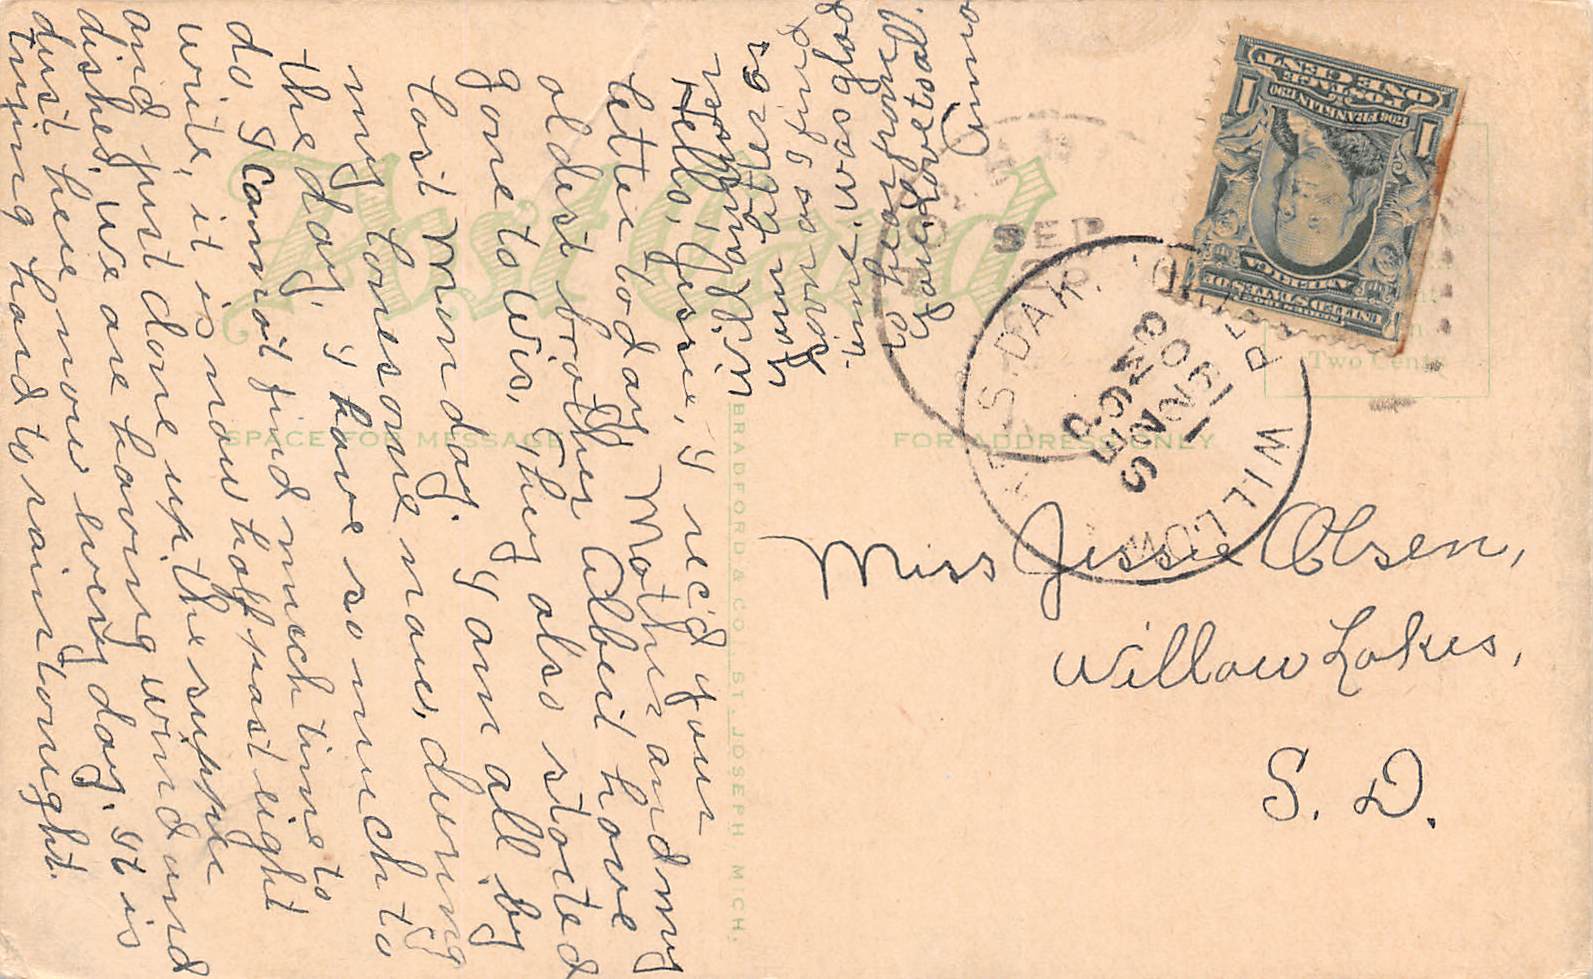 Post Card
SPACE FOR MESSAGE
FOR ADDRESS ONLY
BRADFORD & CO., ST. JOSEPH, MICH.
Two Cents
UNITED STATES OF
AMERICA
1706 FRANKLIN 1790
POSTAGE
ONE CENT
1
1
SEP
WILLOW
S. DAK.
REC'D.
SEP
8 PM
1908
Miss Jessie Olsen,
Willow Lakes,
S. D.
Hello, Jessie, I rec'd your
letter today. Mother and my
oldest brother Albert have
gone to Wis, They also started
last Monday. I am all by
my lonesome now, during
the day. I have so much to
do I cannot find much time to
write, it is now half past eight
and just done up the supper
dishes, we are having wind and
dust here now every day. It is
trying hard to rain tonight.
time. was glad
to hear from
you. Love to all.
Anna